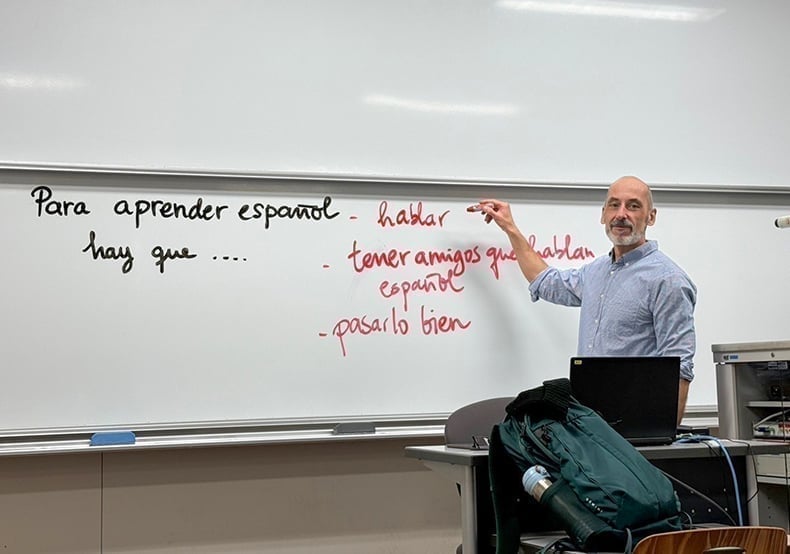 Para aprender español - hablar
hay que .... - tener amigos que hablan
español
- pasarlo bien